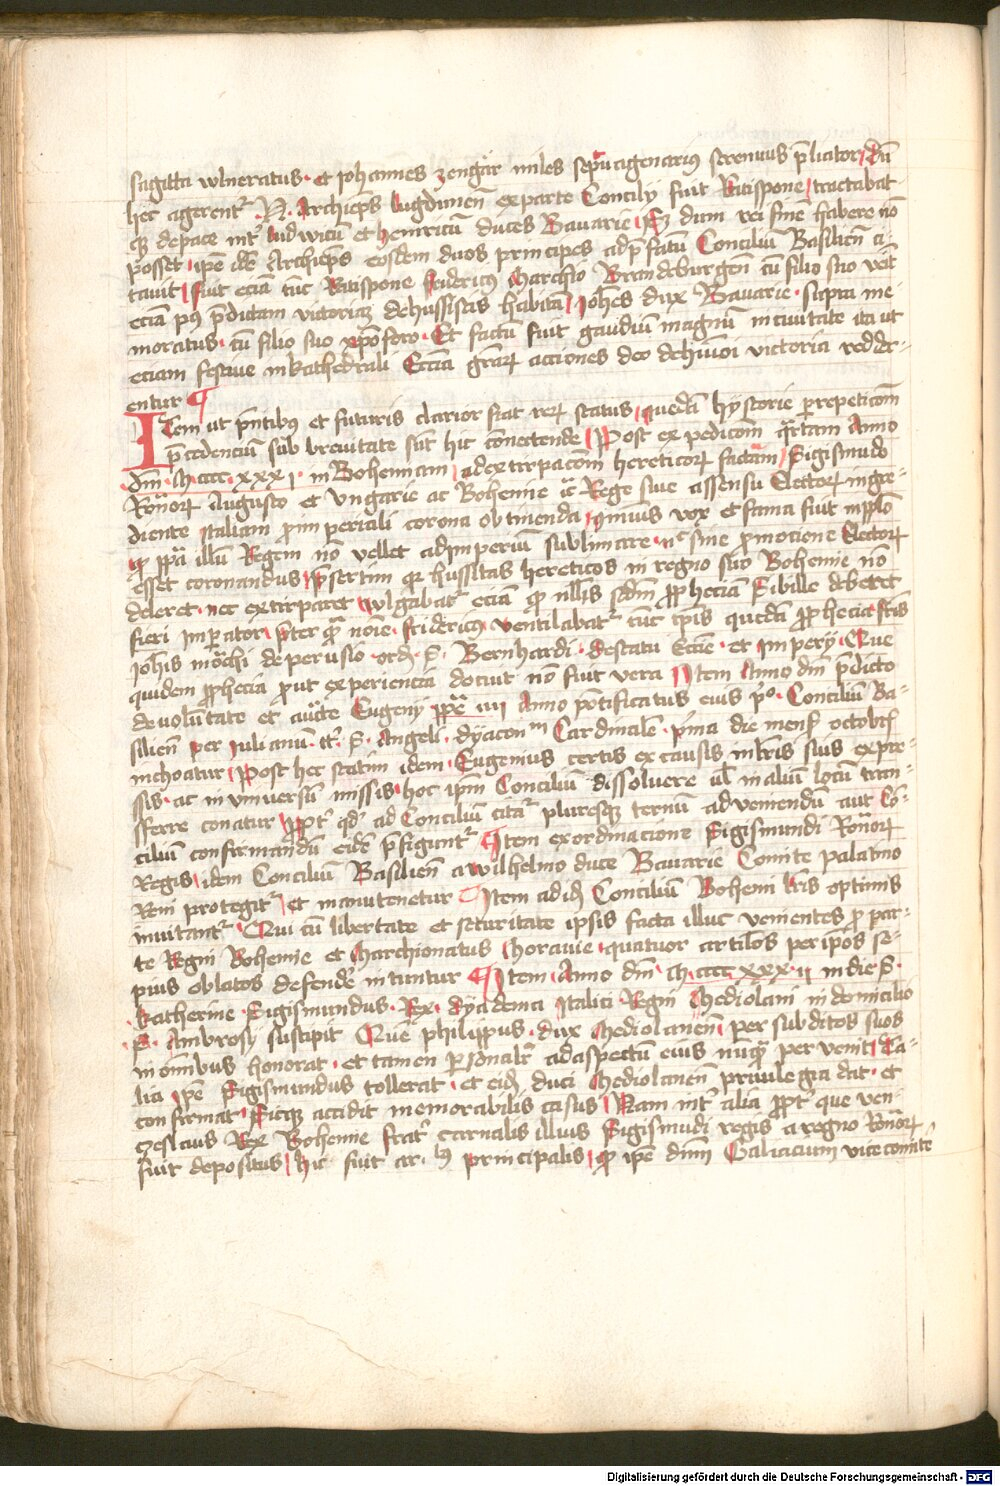 sagitta wlneratus · et Johannes zengär miles septuagenarius strenuus p̄liator / Dū
hec agerent᷑ · N · Archiep̄s lugdunen̄ ex parte Concilij fuit Ratispone / tractabat
qꝫ de pace int᷑ ludwicū et heinricū duces Bauarie / Sꝫ dum rei finē habere nō
posset / ip̄e idē Archiep̄s eosdem duos principes ad p̄fatū Conciliū Basilien̄ ci-
tauit / fuit eciā tūc Ratispone fridericꝰ Marchio Brandeburgen̄ cū filio suo
eciā pꝰ p̄dictam victoriaꝫ de hussistas habitā / Joh̄es dux Bauarie · supra me-
moratus · cū filio suo xp̄oforo · Et factū fuit gaudiū magnū in ciuitate ita ut
eciam festiue in kathedrali Ecc̄ia gr̄aꝝ acciones deo de hm̄oi victoria redde-
entur ¶
Item ut p̄ntibꝰ et futuris clarior fiat reꝝ status / quedā hystorie p̄ repeticōm
p̄cedenciū sub breuitate sūt hic cōnectende / Post expedicōm q̄rtam Anno
dm̄ · M · cccc · xxx i · in Bohemiam / ad extirpacōm hereticoꝝ factam / Sigismūdo
Rōnoꝝ Augusto et Vngarie ac Bohemie ꝛc̄ Rege siue assensu Electoꝝ ingre-
diente ytaliam pro imperiali corona obtinenda / qm̄uis vox et fama fuit in pp̄lo
qꝫ pp̄a illū Regem nō vellet ad imperiū sublimare · nc̄ sine promocione Electoꝝ
esset coronandus / p̄sertim qꝫ hussitas hereticos in regno suo Bohemie nō
deleret · nec extirparet / wlgabat᷑ eciā qꝫ nllꝰ scdm̄ proph̄eciā Sibille deberet
fieri Imp̄ator / p̄ter qꝫ noīe · fridericꝰ ventilabat᷑ tūc tp̄is quedā proph̄ecia fr̄is
Joh̄is mōchi de perusio · ord̄ · S · Bernhardi · de statu Ecc̄ie · et Imperij · Que
quidem proph̄ecia prout experiencia docuit nō fuit vera / Item Anno dm̄ p̄dicto
de volūtate et auc̄te Eugenij pp̄e iiii Anno pōtificatus eius p̄o · Conciliū Ba-
silien̄ per Julianū · tt᷑ · S · Angeli · dyaconm̄ Cardinalē · p̄ma die mens̄ octobr̄
inchoatur / Post hec statim idem · Eugenius certis ex causis in lr̄is suis expre-
ssis · ac in vniuersū missis / hoc ip̄m Conciliū dissoluere ul̄ in aliū locū tran-
sferre conatur / propt᷑ qd̄ ad Conciliū citat᷑ pluresqꝫ termī ad veniendū aut Cō-
ciliū confirmandū eidē p̄figunt᷑ / Item ex ordinacione Sigismundi Rōnoꝝ
Regis / idem Conciliū Basilien̄ a wilhelmo duce Bauarie Comite palatino
Reni protegit᷑ / et manutenetur / Item ad id̄ Conciliū Bohemi lr̄is optimis
inuitant᷑ · Qui cū libertate et securitate ipsis facta illuc venientes pro par-
te Regni Bohemie et Marchionatus Morauie · quatuor articl̄os per ip̄os se-
pius oblatos defendē intuntur / Item · Anno dm̄ · M · cccc xxx · ii in die S ·
katherine · Sigismundus · Rex · dyadema Italici Regni Mediolani in domicilio
S · Ambrosij suscipit Quē philippus · dux Mediolanen̄ per subditos suos
in om̄ibus honorat · et tamen personalr̄ ad aspectū eius nūqꝫ peruenit / Ta-
lia ip̄e Sigismundus tollerat · et eid̄ duci Mediolanen̄ priuilegia dat · et
confirmat / Sicqꝫ accidit memorabilis casus / Nam int᷑ alia propt᷑ que ven-
czeslaus Rex Bohemie frat᷑ carnalis illius Sigismūdi regis a regno Rōnoꝝ
fuit depositus / hic fuit ar-lꝰ principalis / qꝫ ip̄e dūm Galiacium vicecomitē
Digitalisierung gefördert durch die Deutsche Forschungsgemeinschaft - DFG